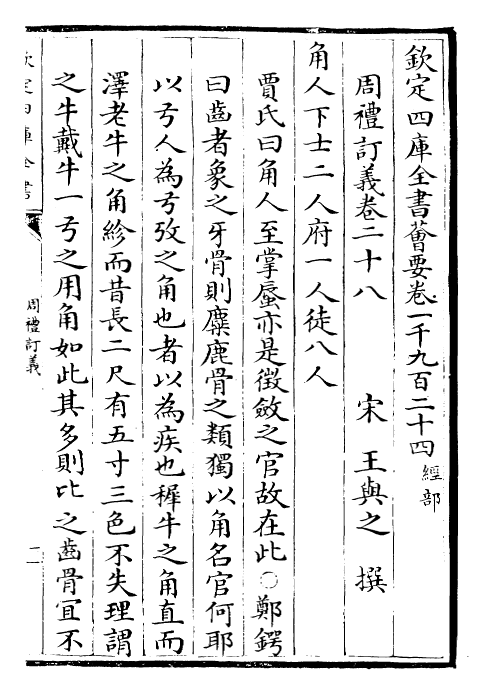 欽定四庫全書薈要卷一千九百二十四 經部
周禮訂義卷二十八 宋 王與之 撰
角人下士二人府一人徒八人
賈氏曰角人至掌蜃亦是徴斂之官故在此○鄭鍔
曰齒者象之牙骨則麋鹿骨之類獨以角名官何耶
以弓人為弓攷之角也者以為疾也穉牛之角直而
澤老牛之角紾而昔長二尺有五寸三色不失理謂
之牛戴牛一弓之用角如此其多則比之齒骨宜不
欽定四庫全書
周禮訂義
二